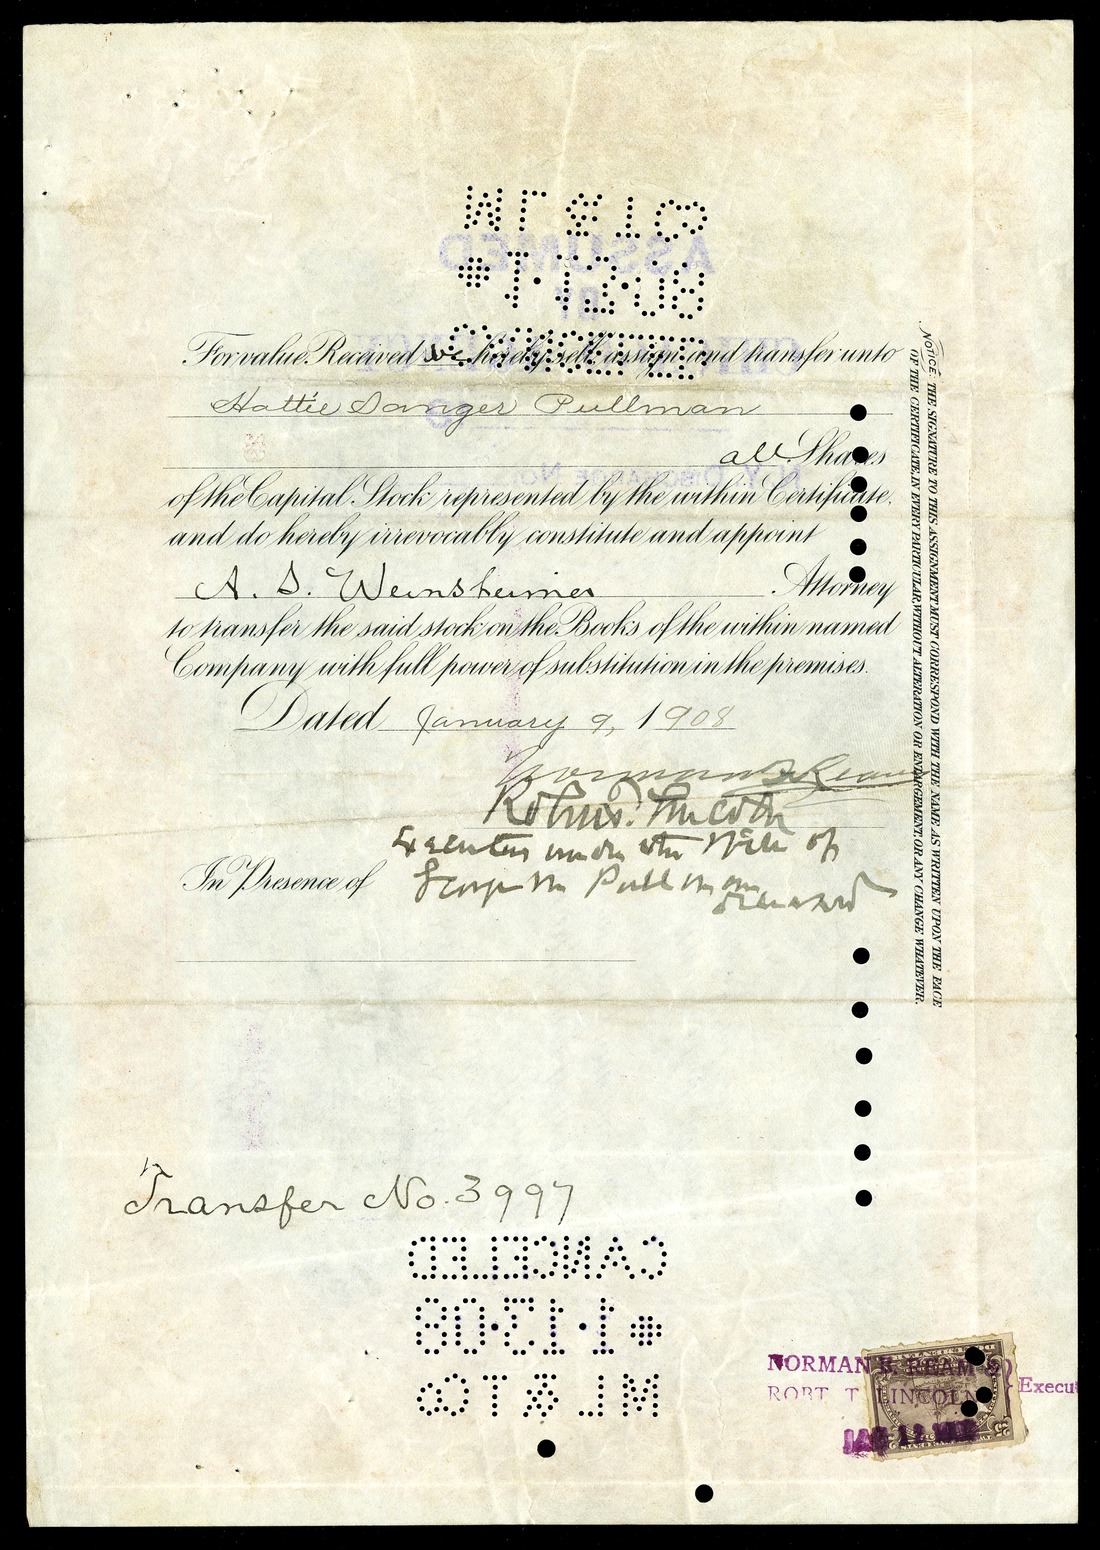 For value Received we hereby sell, assign and transfer unto
Hattie Sanger Pullman
all Shares
of the Capital Stock represented by the within Certificate,
and do hereby irrevocably constitute and appoint
A. S. Weinsheimer Attorney
to transfer the said stock on the Books of the within named
Company with full power of substitution in the premises.
Dated January 9, 1908
Norman B. Ream
Robert T. Lincoln
Executors under the Will of
In Presence of George M Pullman
deceased
NOTICE: THE SIGNATURE TO THIS ASSIGNMENT MUST CORRESPOND WITH THE NAME AS WRITTEN UPON THE FACE
OF THE CERTIFICATE, IN EVERY PARTICULAR, WITHOUT ALTERATION OR ENLARGEMENT, OR ANY CHANGE WHATEVER.
Transfer No. 3997
CANCELLED
1·13·08
ML&TCo
NORMAN B. REAM &
ROBT T. LINCOLN
Execu
25